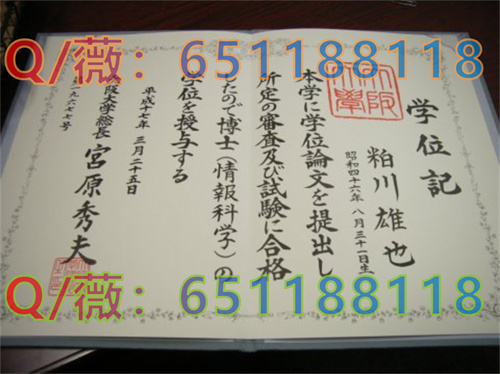 Q/薇：651188118
学位記
大阪大學
粕川雄也
昭和四十六年八月三十一日生
本学に学位論文を提出し
所定の審査及び試験に合格
したので博士(情報科学)の
学位を授与する
平成十七年三月二十五日
大阪大学総長 宮原秀夫
一九六七号
Q/薇：651188118